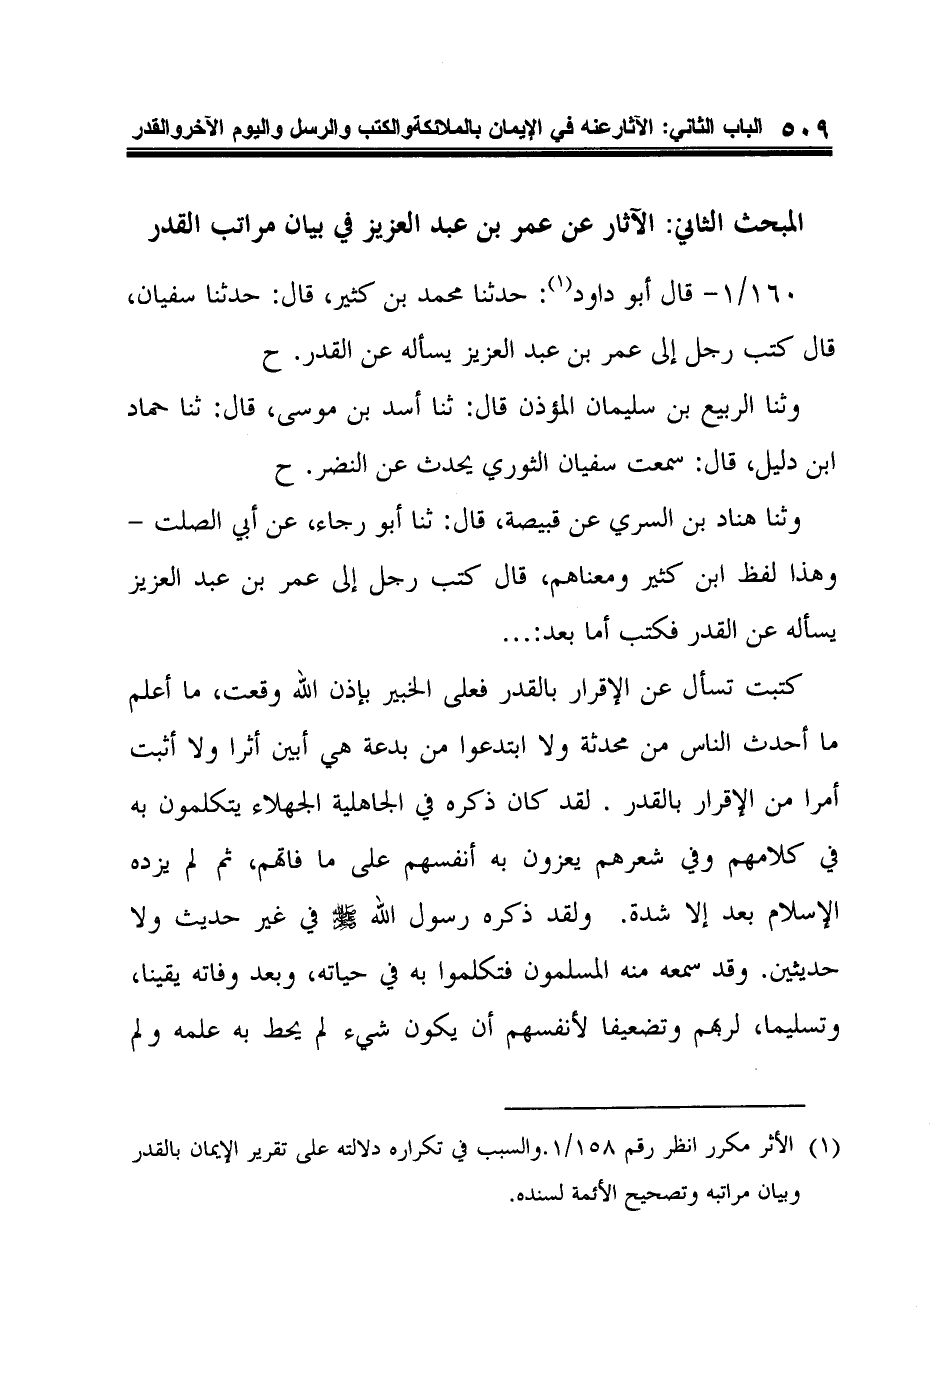 ٥٠٩ الباب الثاني: الآثار عنه في الإيمان بالملائكة والكتب والرسل واليوم الآخر والقدر
المبحث الثاني: الآثار عن عمر بن عبد العزيز في بيان مراتب القدر
١/١٦٠- قال أبو داود(١): حدثنا محمد بن كثير، قال: حدثنا سفيان،
قال كتب رجل إلى عمر بن عبد العزيز يسأله عن القدر. ح
وثنا الربيع بن سليمان المؤذن قال: ثنا أسد بن موسى، قال: ثنا حماد
ابن دليل، قال: سمعت سفيان الثوري يحدث عن النضر. ح
وثنا هناد بن السري عن قبيصة، قال: ثنا أبو رجاء، عن أبي الصلت –
وهذا لفظ ابن كثير ومعناهم، قال كتب رجل إلى عمر بن عبد العزيز
يسأله عن القدر فكتب أما بعد:...
كتبت تسأل عن الإقرار بالقدر فعلى الخبير بإذن الله وقعت، ما أعلم
ما أحدث الناس من محدثة ولا ابتدعوا من بدعة هي أبين أثرا ولا أثبت
أمرا من الإقرار بالقدر . لقد كان ذكره في الجاهلية الجهلاء يتكلمون به
في كلامهم وفي شعرهم يعزون به أنفسهم على ما فاتهم، ثم لم يزده
الإسلام بعد إلا شدة. ولقد ذكره رسول الله ﷺ في غير حديث ولا
حديثين. وقد سمعه منه المسلمون فتكلموا به في حياته، وبعد وفاته يقينا،
وتسليما، لربهم وتضعيفا لأنفسهم أن يكون شيء لم يحط به علمه ولم
(١) الأثر مكرر انظر رقم ١/١٥٨.والسبب في تكراره دلالته على تقرير الإيمان بالقدر
وبيان مراتبه وتصحيح الأئمة لسنده.